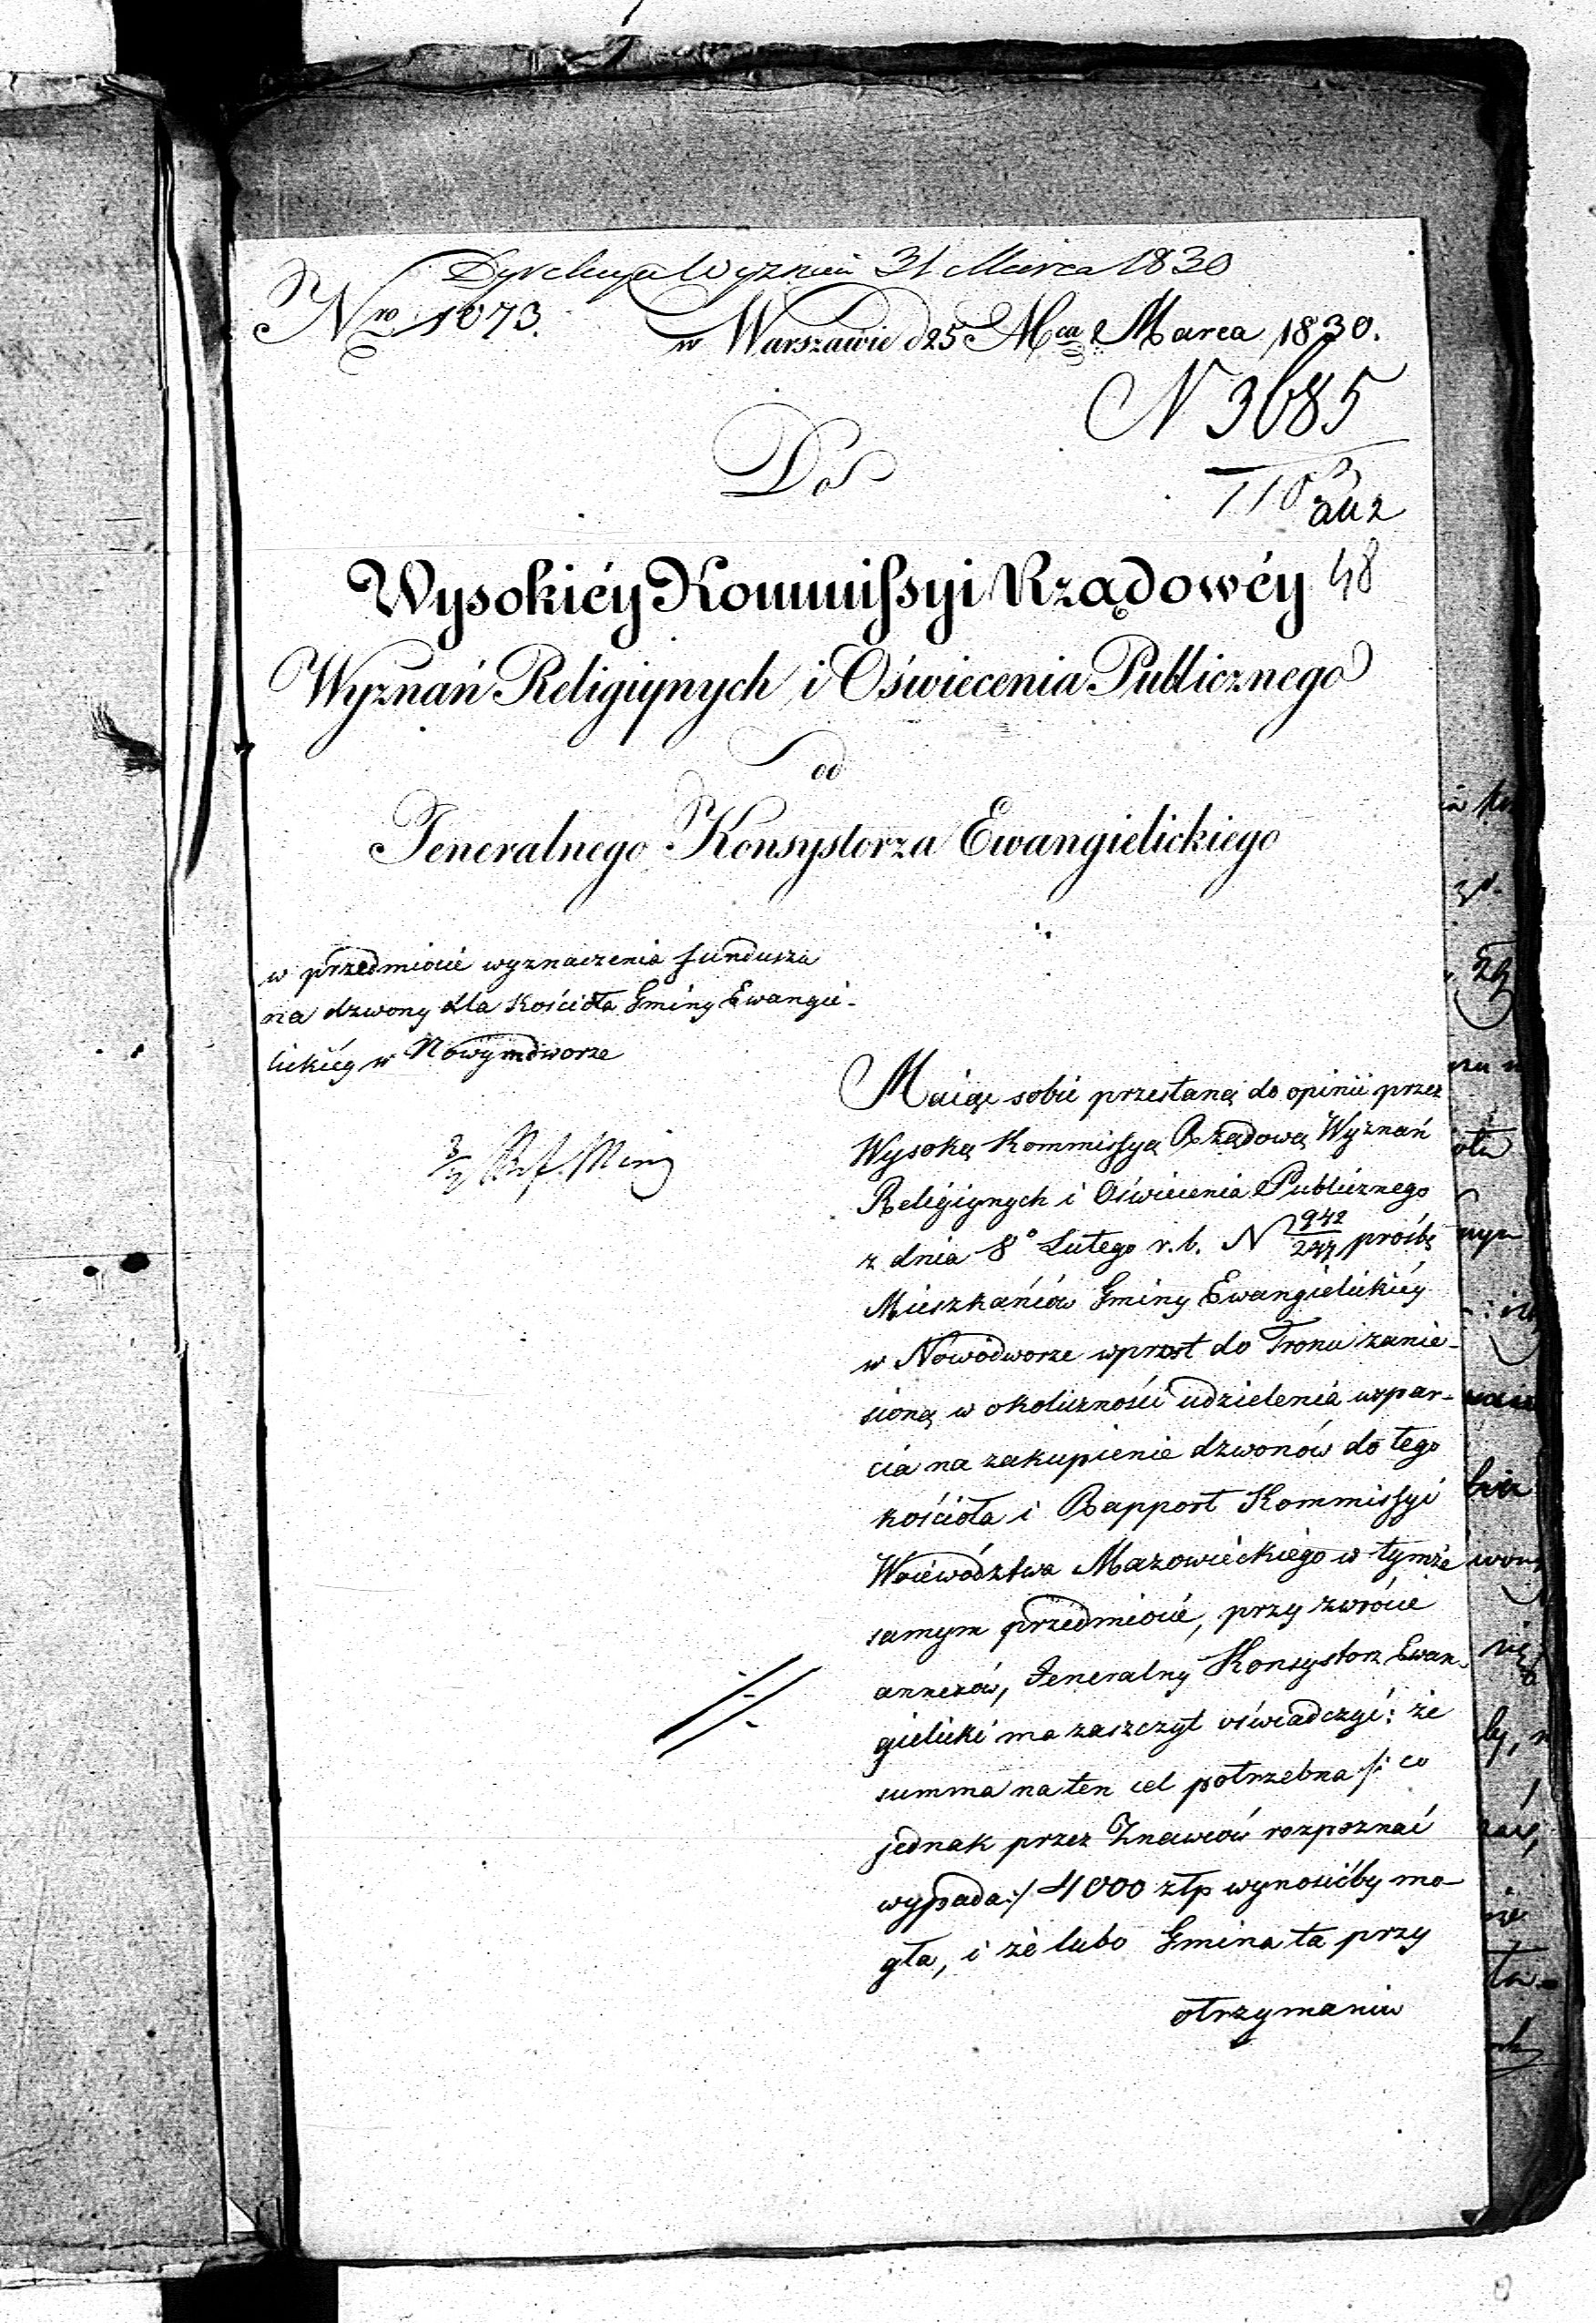 Dyrekcya Wyznań 31 Marca 1830
Nro 1073. w Warszawie d 25 Mca Marca 1830.
N 3685
Do
48
Wysokiéy Kommissyi Rządowéy
Wyznań Religiynych i Oświecenia Publicznego
od
Jeneralnego Konsystorza Ewangielickiego
w przedmiocie wyznaczenia funduszu
na dzwony dla Kościoła Gminy Ewangie-
lickiéy w Nowymdworze
Maiąc sobie przesłaną do opinii przez
Wysoką Kommissyą Rządową Wyznań
Religiynych i Oświecenia Publicznego
z dnia 8o Lutego r. b. N 942/247 prośbę
Mieszkańców Gminy Ewangielickiéy
w Nowodworze wprost do Tronu zanie-
sioną w okoliczności udzielenia wspar-
cia na zakupienie dzwonów do tego
kościoła i Rapport Kommissyi
Woiewództwa Mazowieckiego w tymże
samym przedmiocie, przy zwrócie
annexów, Jeneralny Konsystorz Ewan-
gielicki ma zaszczyt oświadczyć: że
summa na ten cel potrzebna /: co
jednak przez Znawców rozpoznać
wypada :/ 4000 złp wynosićby mo-
gła, i że lubo Gmina ta przy
otrzymaniu